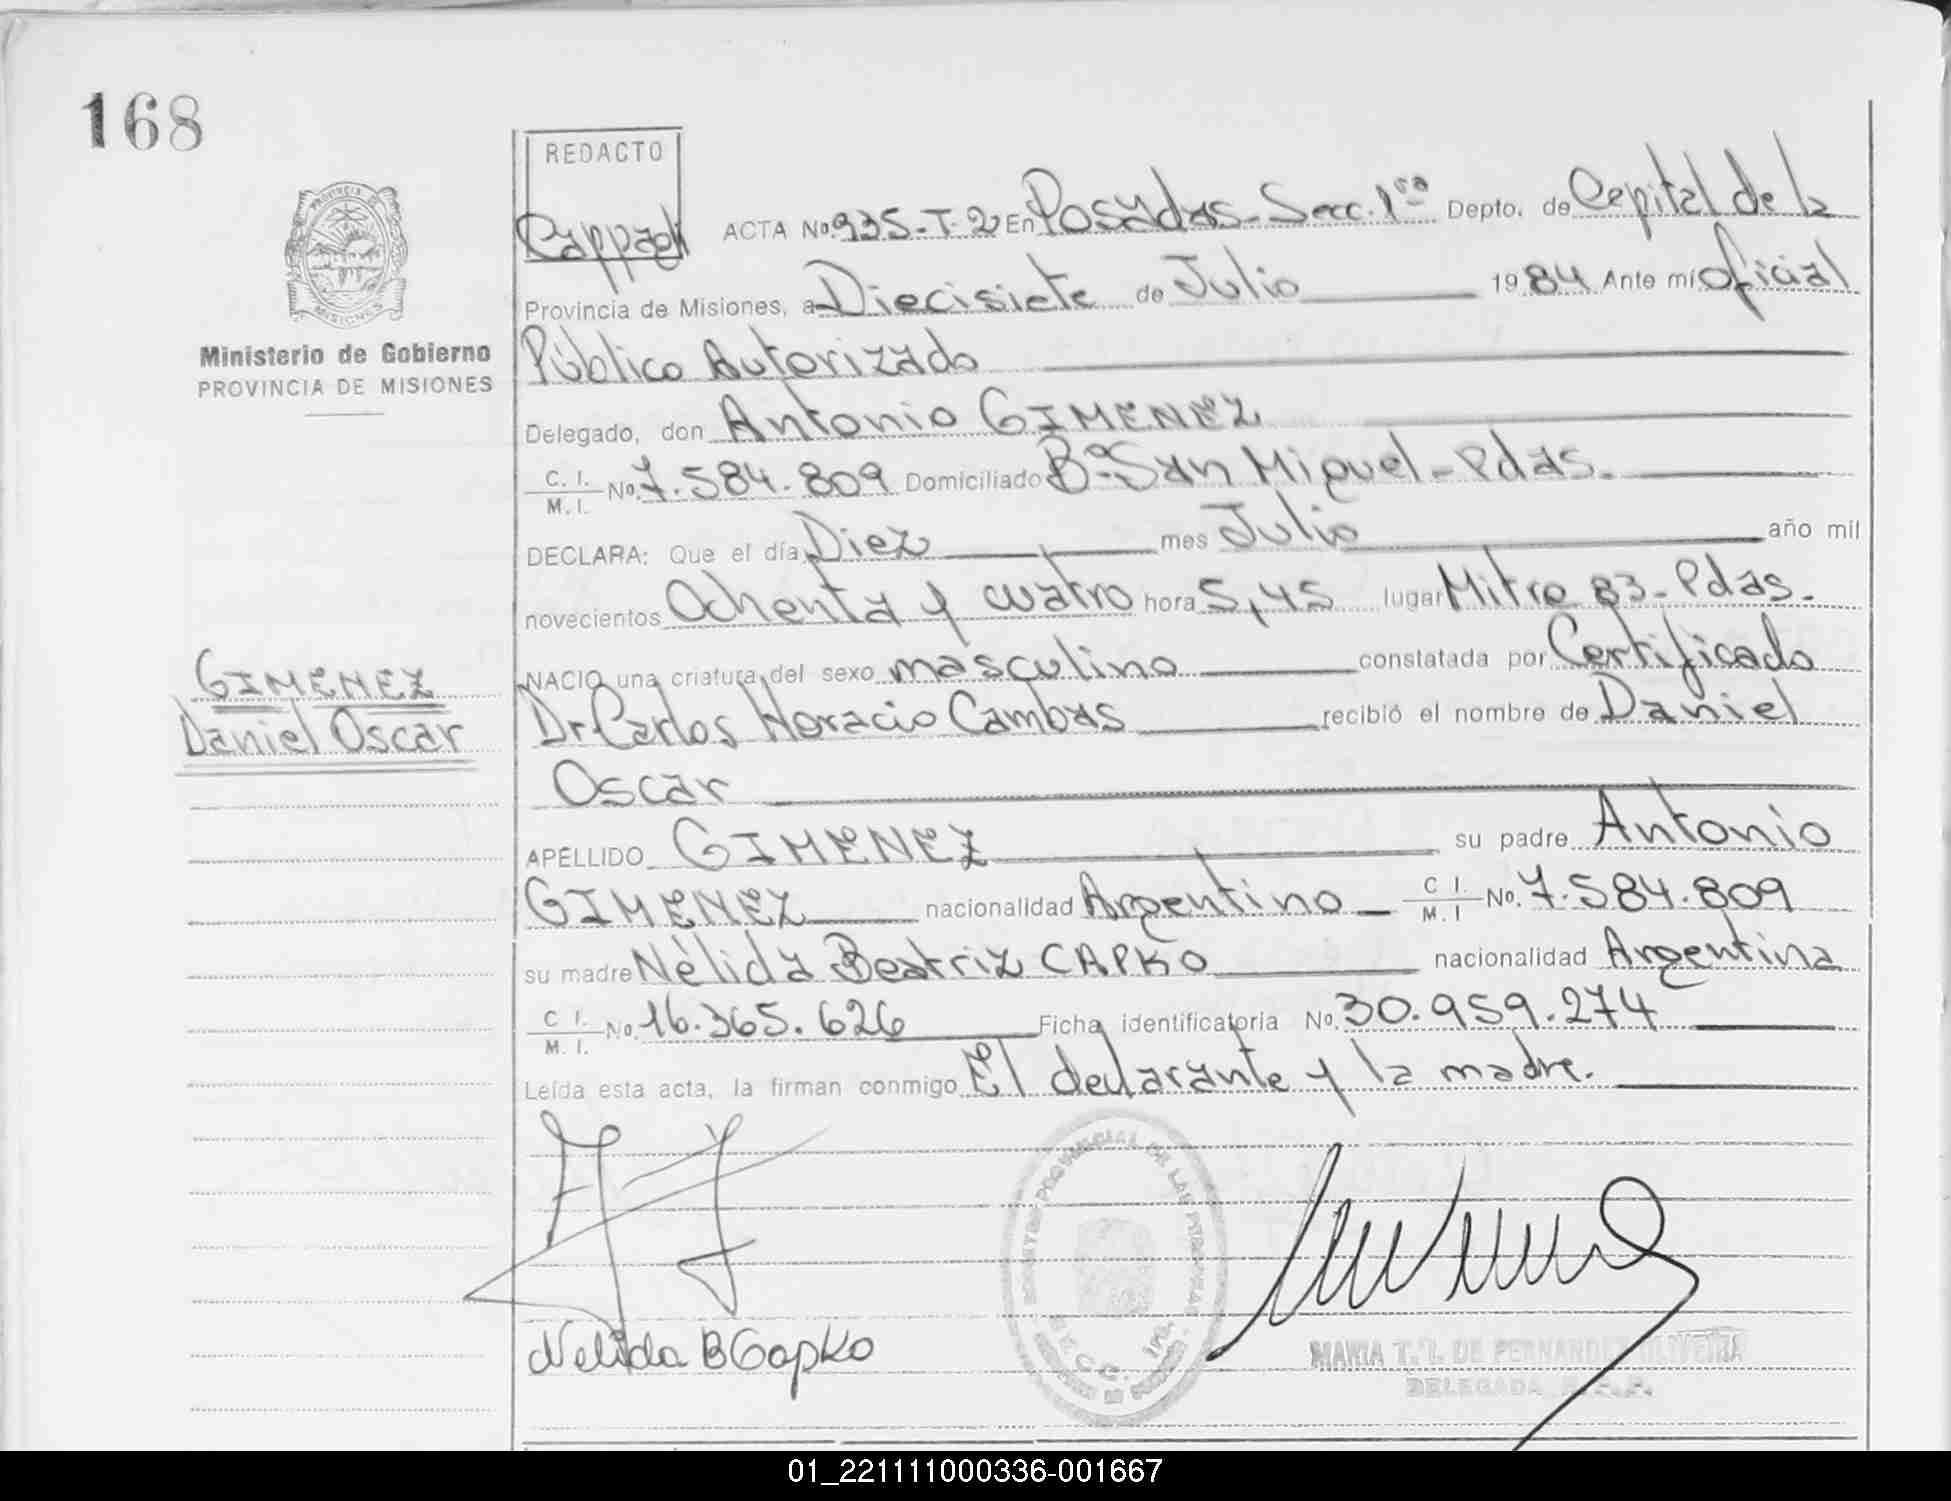 168
REDACTO
Cappagli ACTA No. 935-T-2 En Posadas-Secc. 1ra Depto. de Capital de la
Provincia de Misiones, a Diecisiete de Julio 1984 Ante mi Oficial
Ministerio de Gobierno
PROVINCIA DE MISIONES
Público Autorizado
Delegado, don Antonio GIMENEZ
C. I. M. I. No. 7.584.809 Domiciliado Bo San Miguel-Pdas.
DECLARA: Que el día Diez mes Julio año mil
novecientos Ochenta y cuatro hora 5,45 lugar Mitre 83-Pdas.
NACIO una criatura del sexo masculino constatada por Certificado
GIMENEZ
Daniel Oscar
Dr. Carlos Horacio Cambas recibió el nombre de Daniel
Oscar
APELLIDO GIMENEZ su padre Antonio
GIMENEZ nacionalidad Argentino C I. M. I No. 7.584.809
su madre Nélida Beatriz CAPKO nacionalidad Argentina
C I. M. I. No. 16.365.626 Ficha identificatoria No. 30.959.274
Leída esta acta, la firman conmigo El declarante y la madre.
Nelida B Capko
MARIA T. I. DE FERNANDEZ OLIVEIRA
DELEGADA
01_221111000336-001667